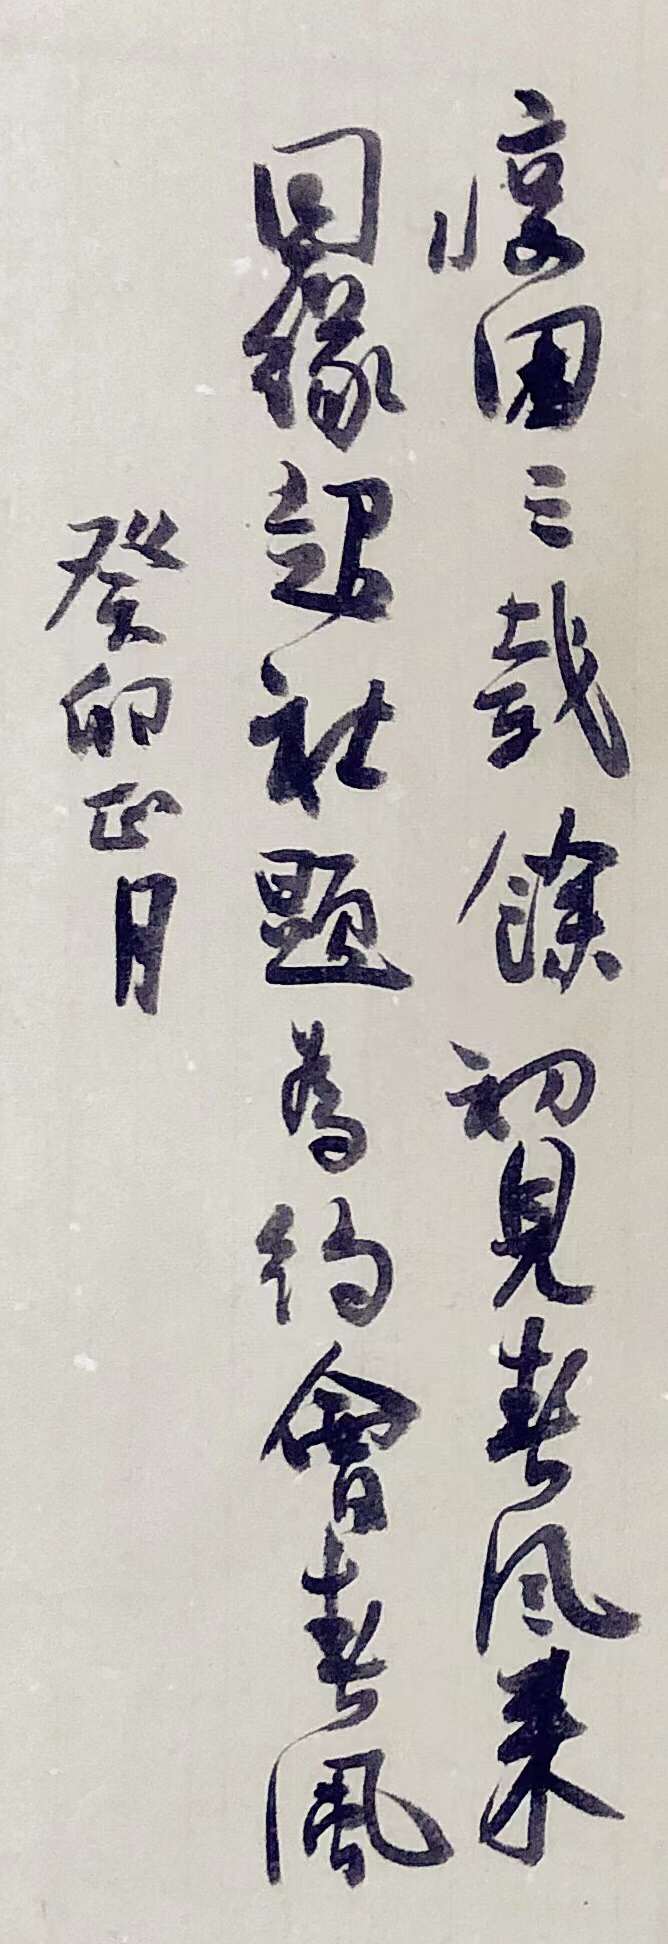 疫困三載餘初見春風来
因緣起社題為約會春風
癸卯正月